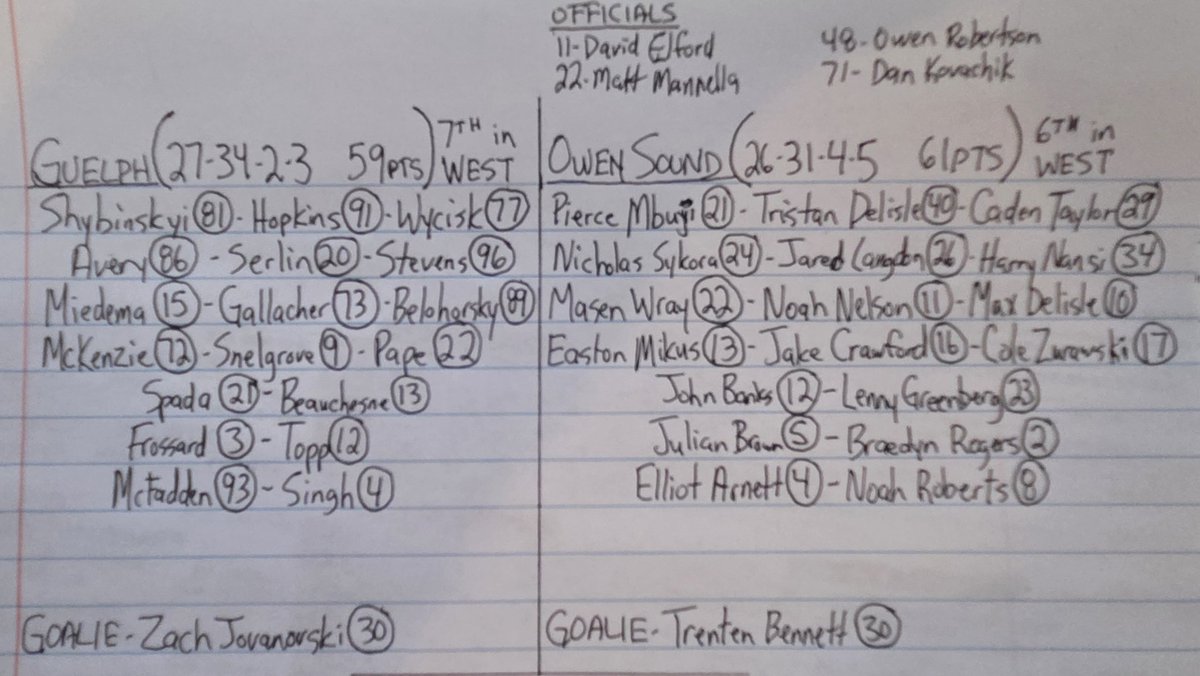 OFFICIALS
11-David Elford
22-Matt Mannella
48-Owen Robertson
71-Dan Kovachik
GUELPH (27-34-2-3 59PTS) 7TH in WEST
Shybinskyi (81) - Hopkins (91) - Wycisk (77)
Avery (86) - Serlin (20) - Stevens (96)
Miedema (15) - Gallacher (73) - Belohorsky (89)
McKenzie (72) - Snelgrove (9) - Pape (22)
Spada (21) - Beauchesne (13)
Frossard (3) - Topp (12)
McFadden (93) - Singh (4)
GOALIE - Zach Jovanovski (30)
OWEN SOUND (26-31-4-5 61PTS) 6TH in WEST
Pierce Mbuyi (21) - Tristan Delisle (40) - Caden Taylor (29)
Nicholas Sykora (24) - Jared Langdon (26) - Harry Nansi (34)
Masen Wray (22) - Noah Nelson (11) - Max Delisle (10)
Easton Mikus (13) - Jake Crawford (16) - Cole Zurawski (17)
John Banks (12) - Lenny Greenberg (23)
Julian Brown (5) - Braedyn Rogers (2)
Elliot Arnett (4) - Noah Roberts (8)
GOALIE - Trenten Bennett (30)